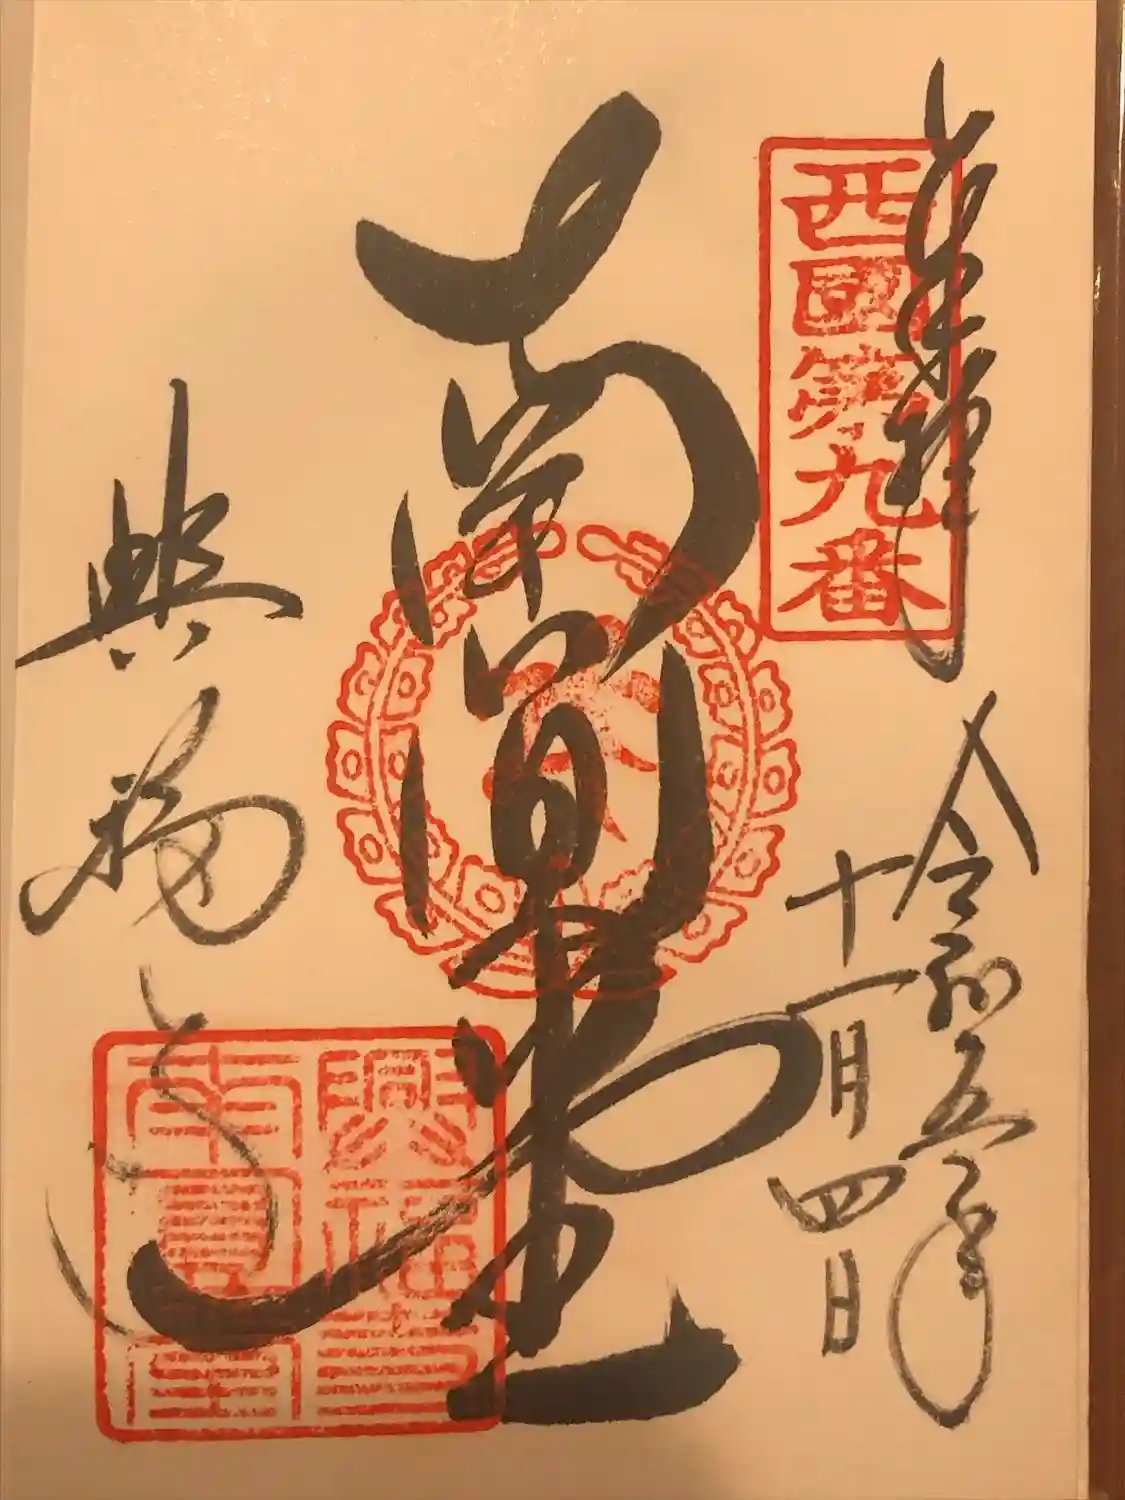 奉拝
西國第九番
令和五年
十一月四日
南圓堂
興福寺
興福寺
南圓堂